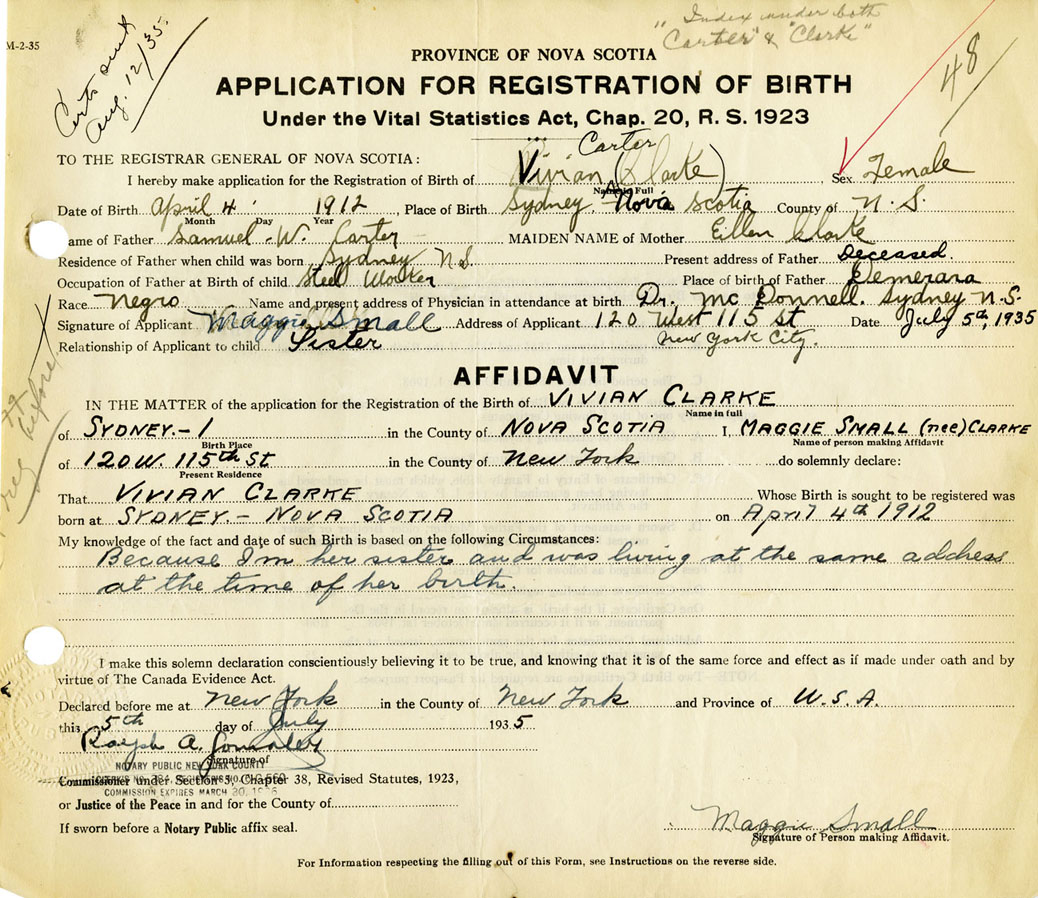 "Index under both
"Carter" & "Clarke"
M-2-35
Certs sent
Aug. 12/35.
48
PROVINCE OF NOVA SCOTIA
APPLICATION FOR REGISTRATION OF BIRTH
Under the Vital Statistics Act, Chap. 20, R. S. 1923
TO THE REGISTRAR GENERAL OF NOVA SCOTIA:
Carter
I hereby make application for the Registration of Birth of Vivian (Clarke) , Sex Female
Name in Full
Date of Birth April 4 1912, Place of Birth Sydney, Nova Scotia County of N. S.
Month Day Year
Name of Father Samuel W. Carter MAIDEN NAME of Mother Eillen Clarke
Residence of Father when child was born Sydney N.S. Present address of Father Deceased.
Occupation of Father at Birth of child Steel Worker Place of birth of Father Demerara
Race Negro Name and present address of Physician in attendance at birth Dr. Mc Donnell. Sydney N.S.
Signature of Applicant Maggie Small Address of Applicant 120 West 115 St Date July 5th, 1935
Relationship of Applicant to child Sister New York City.
AFFIDAVIT
before
IN THE MATTER of the application for the Registration of the Birth of VIVIAN CLARKE
Name in full
of SYDNEY.-1 in the County of NOVA SCOTIA I, MAGGIE SMALL (nee) CLARKE
Birth Place Name of person making Affidavit
of 120 W. 115th St in the County of New York do solemnly declare:
Present Residence
That VIVIAN CLARKE Whose Birth is sought to be registered was
born at SYDNEY.- NOVA SCOTIA on April 4th 1912
My knowledge of the fact and date of such Birth is based on the following Circumstances:
Because I'm her sister and was living at the same address
at the time of her birth.
I make this solemn declaration conscientiously believing it to be true, and knowing that it is of the same force and effect as if made under oath and by
virtue of The Canada Evidence Act.
Declared before me at New York in the County of New York and Province of U.S.A.
this 5th day of July 1935
Ralph A. Gonzalez
Signature of
NOTARY PUBLIC NEW YORK COUNTY
Commissioner under Section 3, Chapter 38, Revised Statutes, 1923,
COMMISSION EXPIRES MARCH 30, 1936
or Justice of the Peace in and for the County of
If sworn before a Notary Public affix seal.
Maggie Small
Signature of Person making Affidavit.
For Information respecting the filling out of this Form, see Instructions on the reverse side.